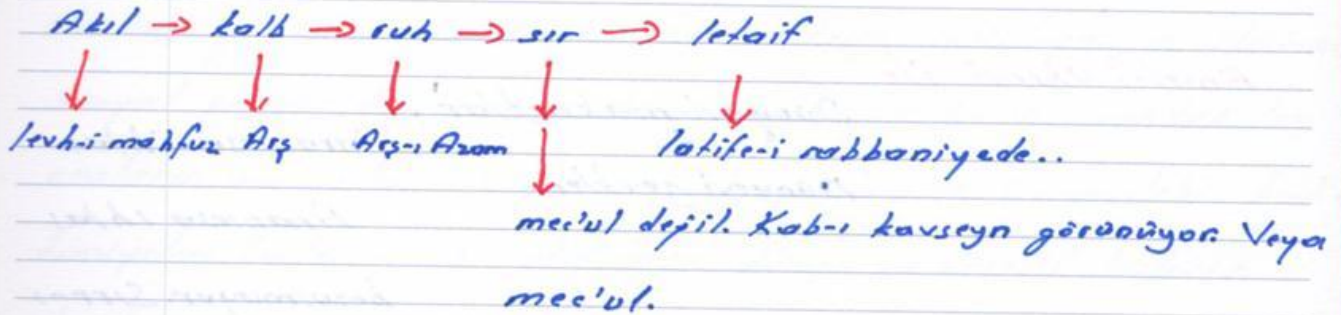 Akıl → kalb → ruh → sır → letaif
levh-i mahfuz Arş Arş-ı Azam latife-i rabbaniyede..
mec'ul değil. Kab-ı kavseyn görünüyor. Veya
mec'ul.